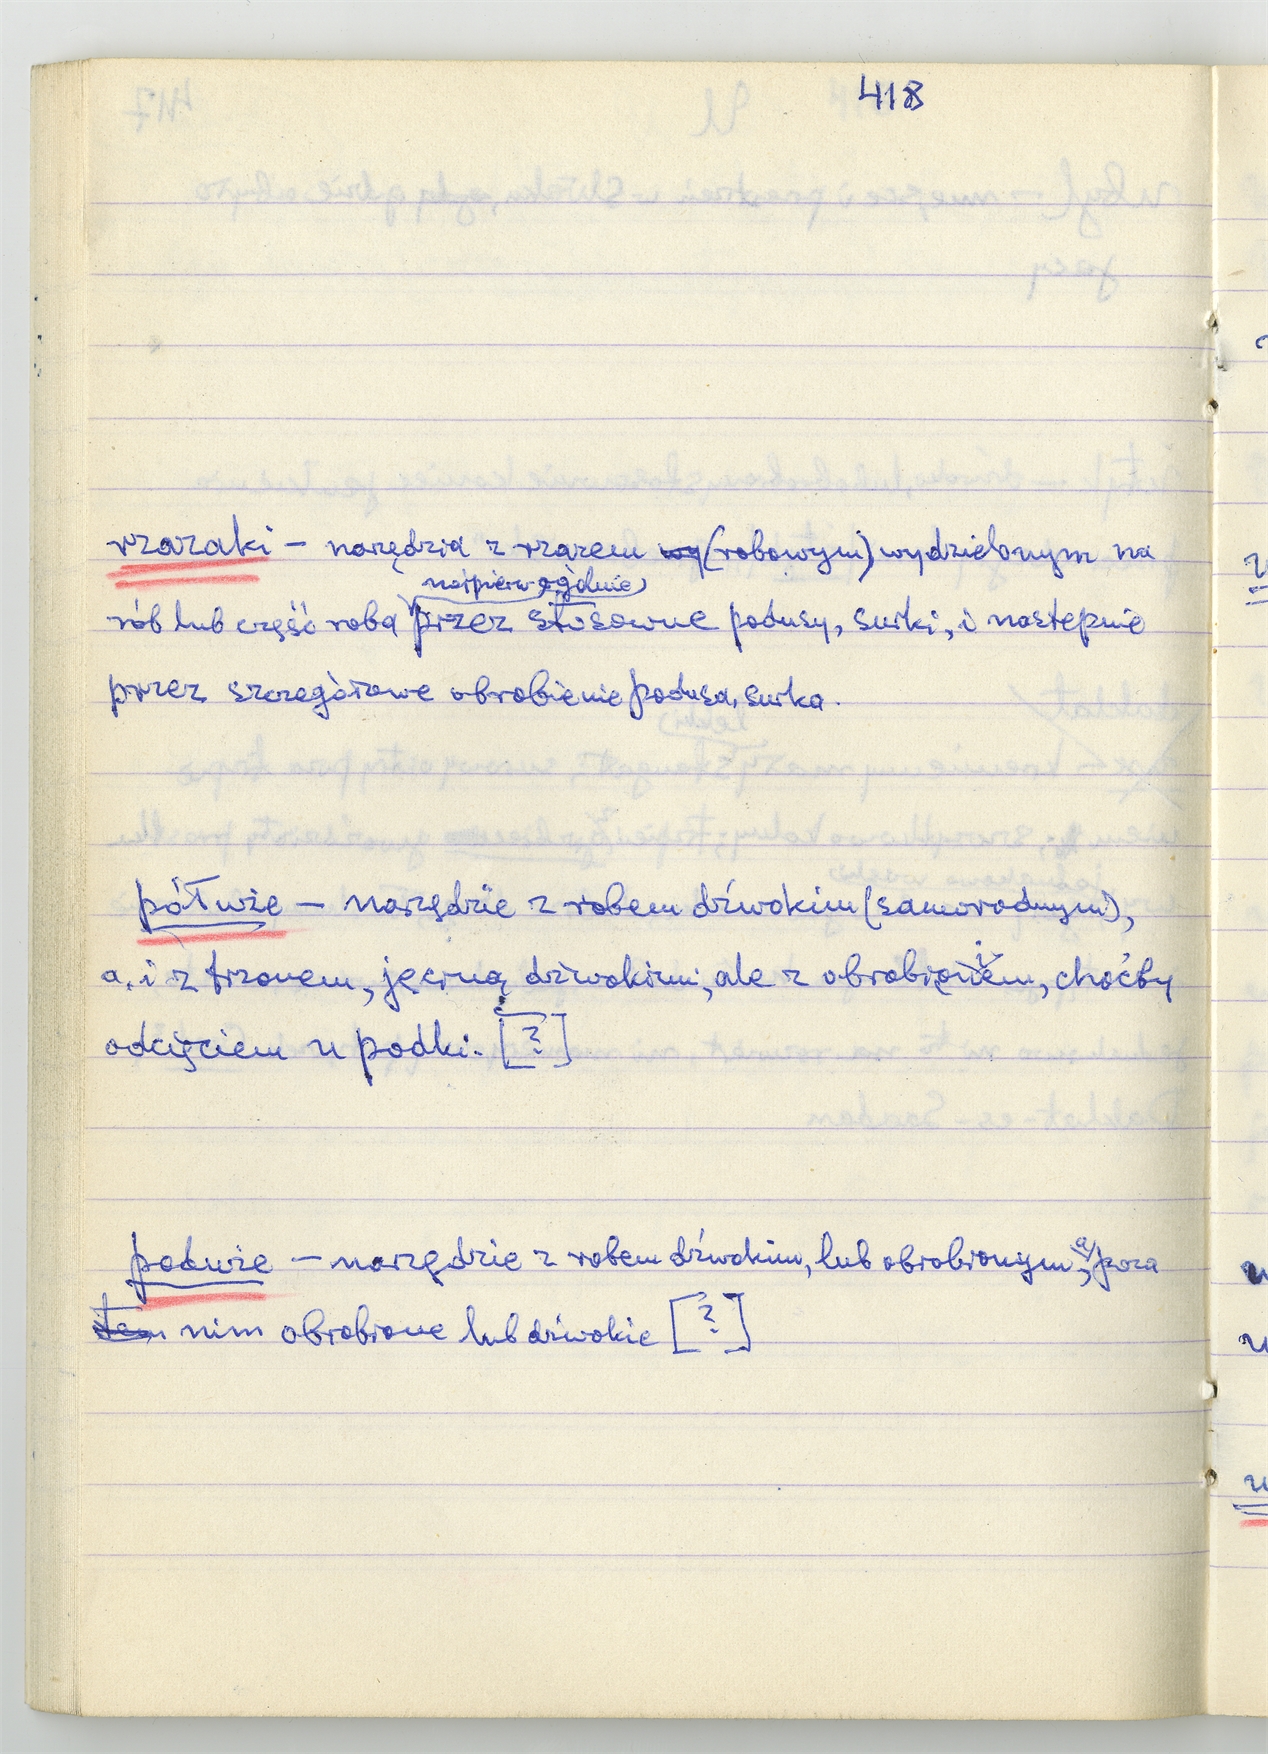 418
rzazaki – narzędzia z rzazem wy (robowym) wydzielonym na
najpierw ogólnie
rób lub część roba przez stosowne podusy, surki, i nastepnie
przez szczegółowe obrobienie podusa, surka.
półwże – narzędzie z robem dźwokim (samorodnym),
a, i z trzonem, jęczną dźwokimi, ale z obrobieniem, choćby
odcięciem u podki. [?]
podwże – narzędzie z robem dźwokim, lub obrobionym, a poza
nim obrobione lub dźwokie [?]